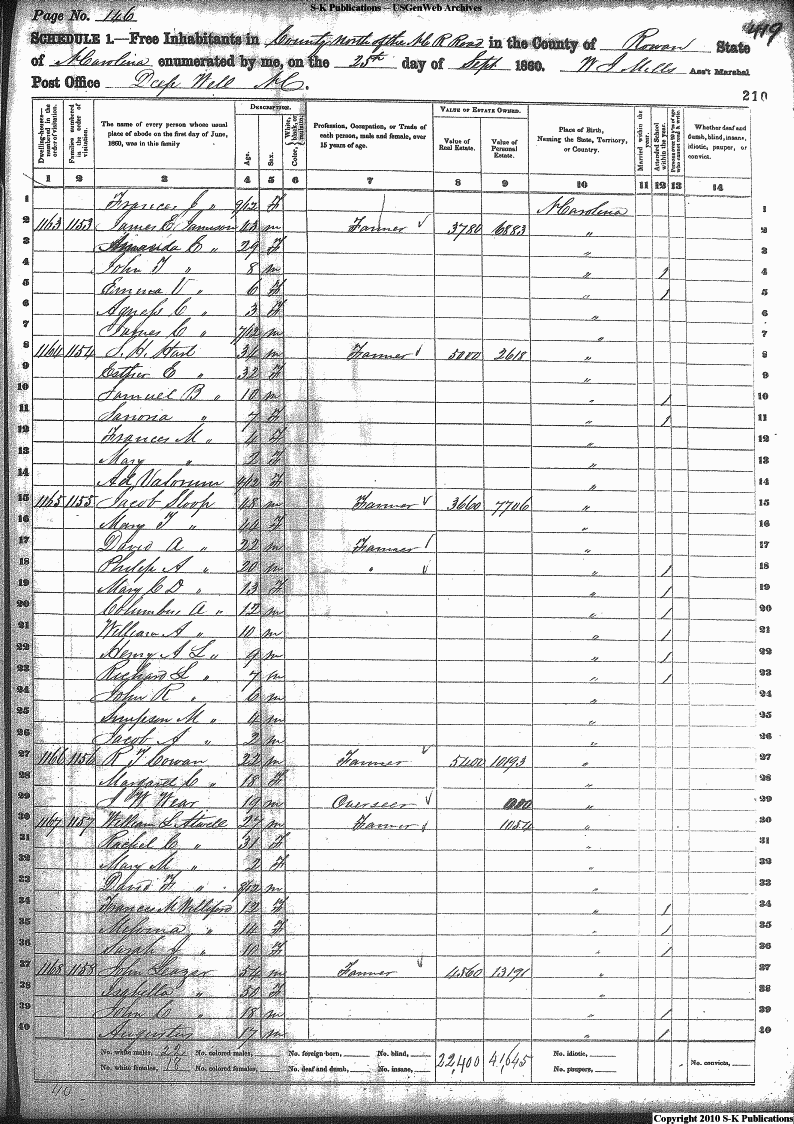 S-K Publications -- USGenWeb Archives
Page No. 146
419
SCHEDULE 1.—Free Inhabitants in County North of the N C R Road in the County of Rowan State
of N Carolina enumerated by me, on the 25th day of Sept 1860. W J Mills Ass't Marshal
Post Office Deep Well N C.
210
Dwelling-houses—numbered in the order of visitation.
Families numbered in the order of visitation.
The name of every person whose usual place of abode on the first day of June, 1860, was in this family
DESCRIPTION.
Age.
Sex.
Color, White, black, or mulatto.
Profession, Occupation, or Trade of each person, male and female, over 15 years of age.
VALUE OF ESTATE OWNED.
Value of Real Estate.
Value of Personal Estate.
Place of Birth, Naming the State, Territory, or Country.
Married within the year.
Attended School within the year.
Persons over 20 y'rs of age who cannot read & write.
Whether deaf and dumb, blind, insane, idiotic, pauper, or convict.
1 2 3 4 5 6 7 8 9 10 11 12 13 14
1 Frances J " 9/12 F N Carolina 1
2 1163 1153 James E Jamison 43 m Farmer 3780 6883 " 2
3 Amanda C " 29 F " 3
4 John F " 8 m " / 4
5 Emma V " 6 F " / 5
6 Agness C " 3 F " 6
7 James C " 7/12 m " 7
8 1164 1154 S. H. Hart 34 m Farmer 5000 2618 " 8
9 Esther E " 32 F " 9
10 Samuel B " 10 m " / 10
11 Sanoria " 7 F " / 11
12 Frances M " 4 F " 12
13 Mary " 2 F " 13
14 Ad Valorum 4/12 F " 14
15 1165 1155 Jacob Sloop 48 m Farmer 3660 7706 " 15
16 Mary T " 44 F " 16
17 David A " 22 m Farmer " 17
18 Philip A " 20 m " " / 18
19 Mary C D " 13 F " / 19
20 Columbus A " 12 m " / 20
21 William A " 10 m " / 21
22 Henry A L " 9 m " / 22
23 Richard L " 7 m " / 23
24 John R " 6 m " 24
25 Simpson M " 4 m " 25
26 Jacob A " 2 m " 26
27 1166 1156 R F Cowan 22 m Farmer 5400 10193 " 27
28 Margaret C " 18 F " 28
29 J W Wear 19 m Overseer " 29
30 1167 1157 William L Atwell 27 m Farmer 1054 " 30
31 Rachel C " 31 F " 31
32 Mary M " 2 F " 32
33 David F " 8/12 m " 33
34 Frances M Williford 12 F " / 34
35 Melvina " 14 F " / 35
36 Sarah J " 10 F " / 36
37 1168 1158 John Leazer 54 m Farmer 4560 13191 " 37
38 Isabella " 50 F " 38
39 John C " 18 m " / 39
40 Augustus 17 m " / 40
No. white males, 22 No. colored males, No. foreign-born, No. blind, 22,400 41,645 No. idiotic,
No. white females, 18 No. colored females, No. deaf and dumb, No. insane, No. paupers, No. convicts,
40
Copyright 2010 S-K Publications